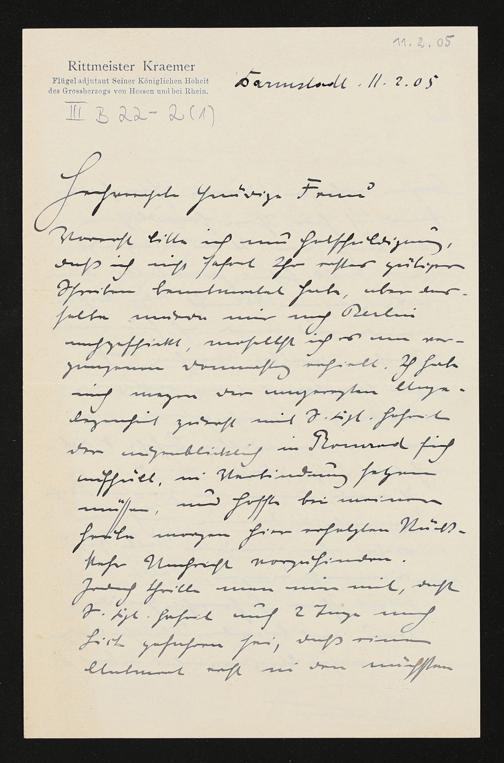 11.2.05
Rittmeister Kraemer
Flügeladjutant Seiner Königlichen Hoheit
des Grossherzogs von Hessen und bei Rhein.
Darmstadt. 11.2.05
III B 22-2(1)
Hochverehrte gnädige Frau
Vorerst bitte ich um Entschuldigung,
daß ich nicht sofort Ihr erstes gütiges
Schreiben beantwortet habe, aber das-
selbe wurde mir nach Berlin
nachgeschickt, woselbst ich es am ver-
gangenen Donnerstag erhielt. Ich habe
mich wegen der angeregten Ange-
legenheit zuerst mit S. Kgl. Hoheit
der augenblicklich in Romrod sich
aufhält, in Verbindung setzen
müssen, und hoffte bei meiner
heute morgen hier erfolgten Rück-
kehr Nachricht vorzufinden.
Jedoch theilte man mir mit, daß
S. Kgl. Hoheit auf 2 Tage nach
Lich gefahren sei, daß eine
Antwort erst in den nächsten